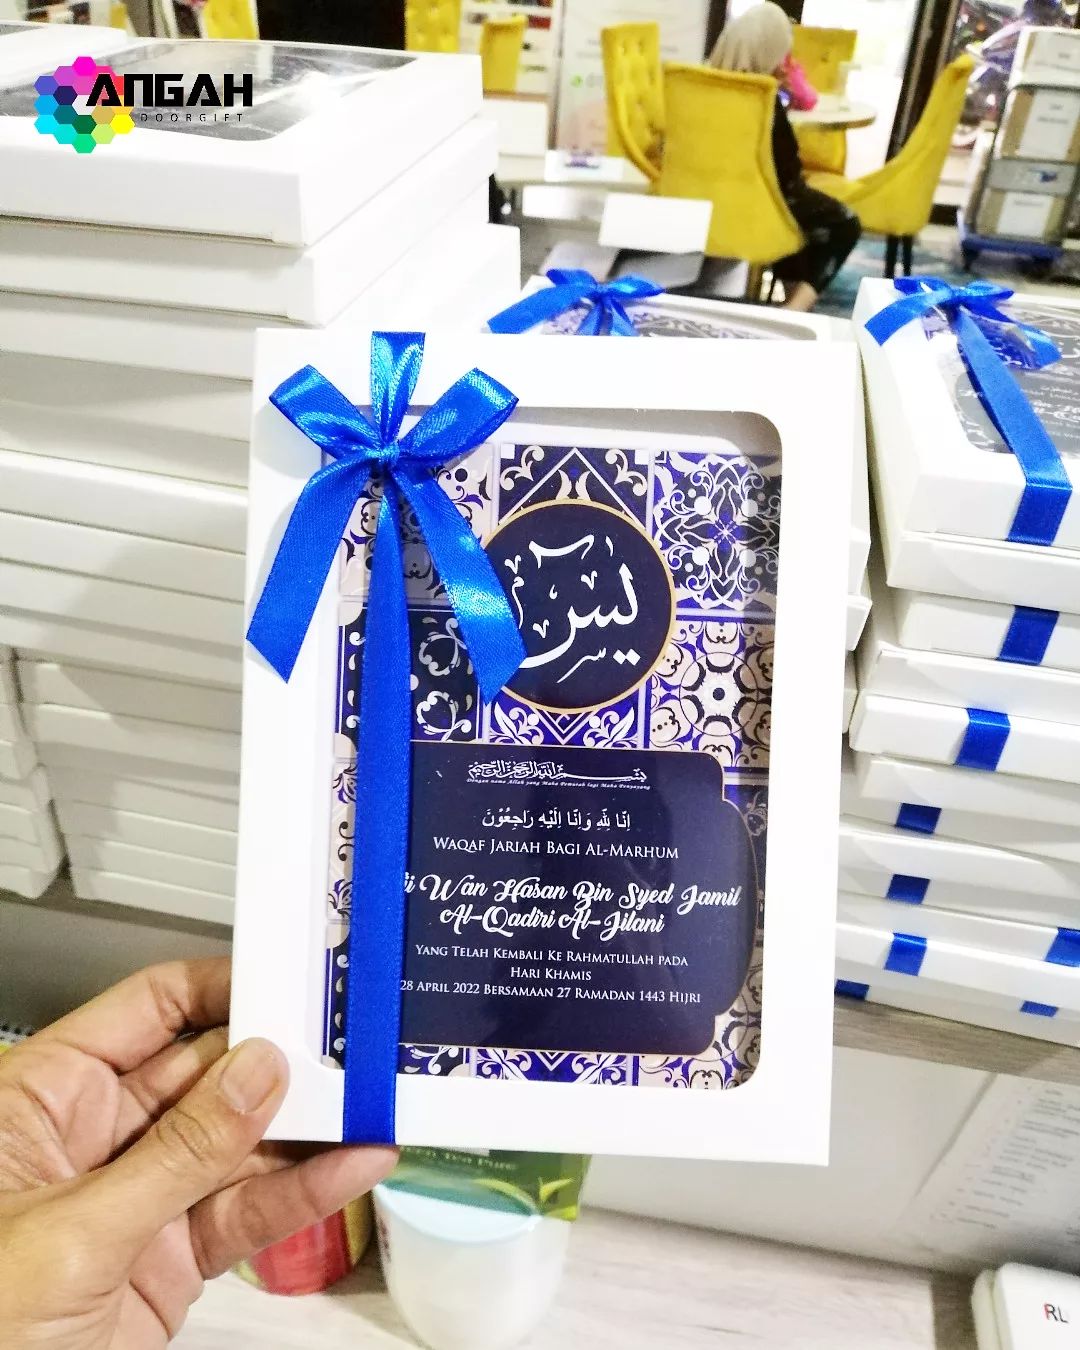 ANGAH
DOORGIFT
يس
بسم الله الرحمن الرحيم
Dengan nama Allah yang Maha Pemurah lagi Maha Penyayang
اِنَّا لِلّٰهِ وَاِنَّا اِلَيْهِ رَاجِعُوْنَ
WAQAF JARIAH BAGI AL-MARHUM
Wan Hasan Bin Syed Jamil
Al-Qadiri Al-Jilani
YANG TELAH KEMBALI KE RAHMATULLAH PADA
HARI KHAMIS
28 APRIL 2022 BERSAMAAN 27 RAMADAN 1443 HIJRI
RL